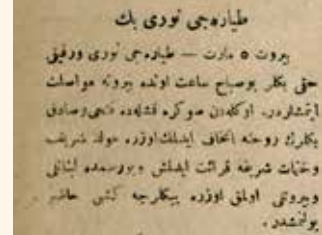 طیاره‌جی نوری بك
بیروت ٥ مارت — طیاره‌جی نوری ورفیقی
حقی بكلر بوصباح ساعت اونده بیروته مواصلت
ایتمشلردر. اوكله‌دن صوكره قشله‌ده فتحی وصادق
بكلرك روحنه اتحاف ایدلمك اوزره مولد شریف
وختمات شریفه قرائت ایدلمش وبورسمده لبنانلی
وبیروتلی اولمق اوزره بیكلرجه كشی حاضر
بولنمشدر.